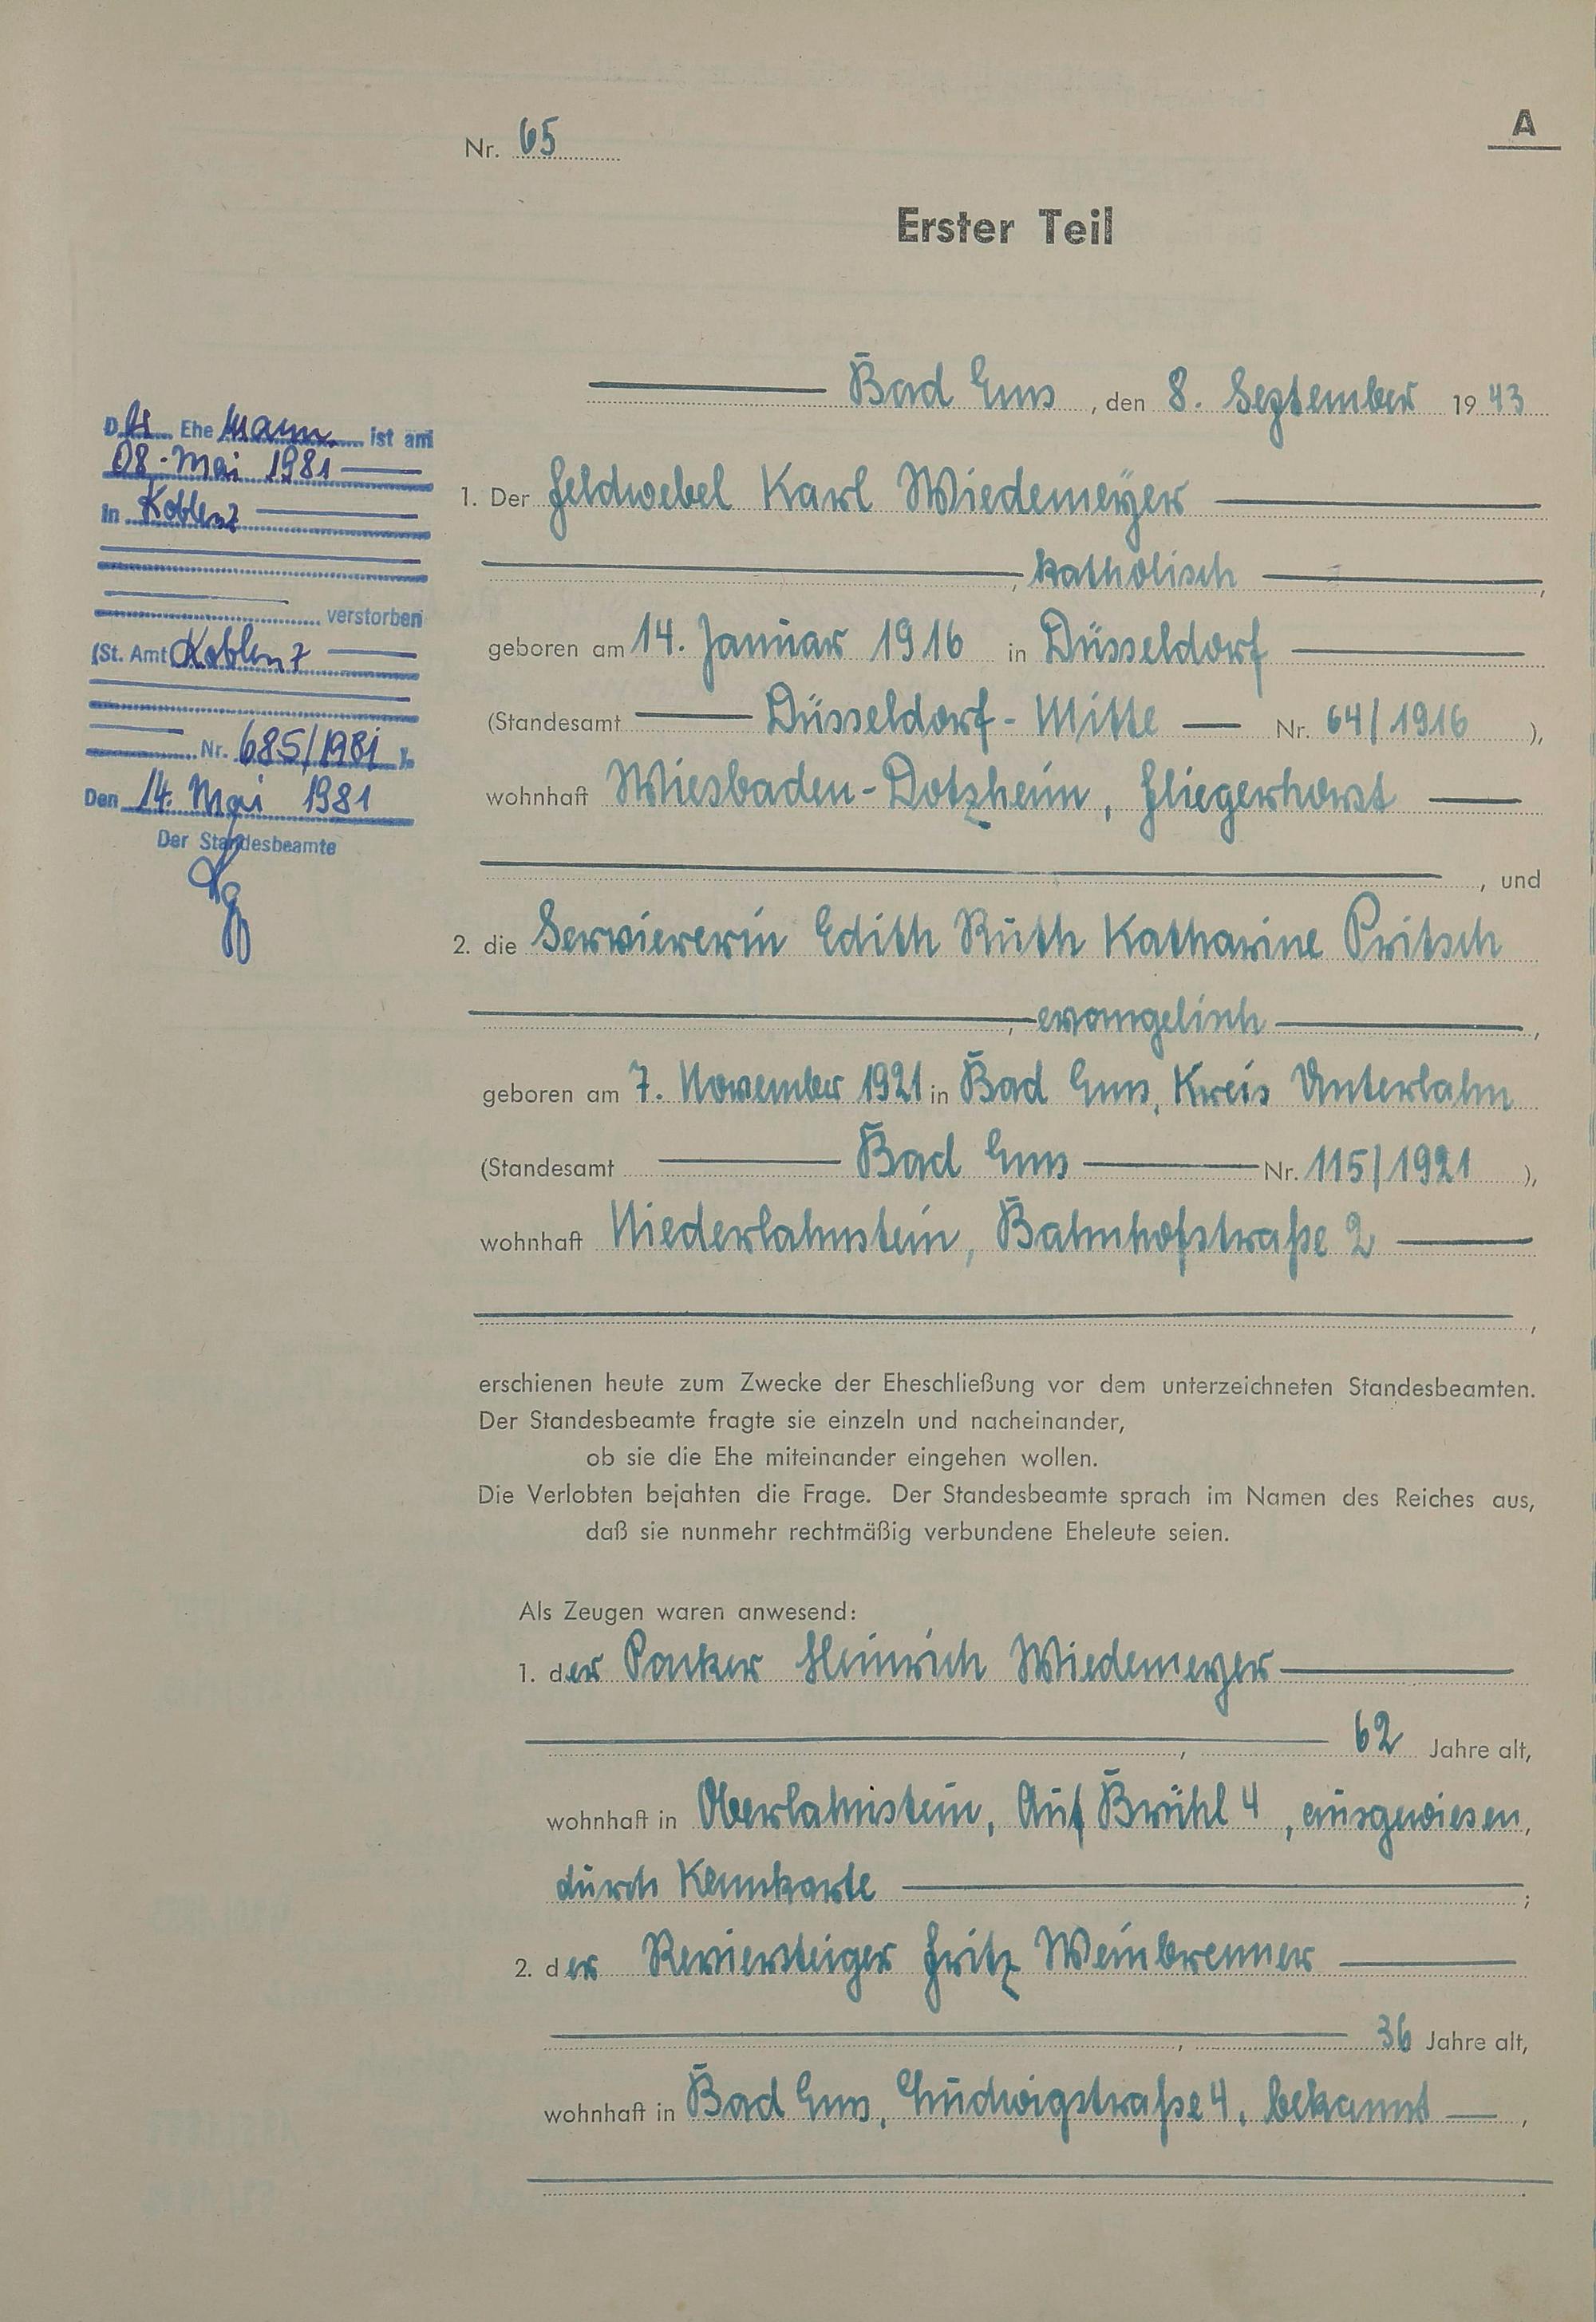 Nr. 65
A
Erster Teil
Bad Ems, den 8. September 1943
1. Der Feldwebel Karl Wiedemeyer
, katholisch,
geboren am 14. Januar 1916 in Düsseldorf
(Standesamt Düsseldorf-Mitte Nr. 64/1916),
wohnhaft Wiesbaden-Dotzheim, Fliegerhorst
, und
2. die Serviererin Edith Ruth Katharine Pritsch
, evangelisch,
geboren am 7. November 1921 in Bad Ems, Kreis Unterlahn
(Standesamt Bad Ems Nr. 115/1921),
wohnhaft Niederlahnstein, Bahnhofstraße 2
,
erschienen heute zum Zwecke der Eheschließung vor dem unterzeichneten Standesbeamten.
Der Standesbeamte fragte sie einzeln und nacheinander,
ob sie die Ehe miteinander eingehen wollen.
Die Verlobten bejahten die Frage. Der Standesbeamte sprach im Namen des Reiches aus,
daß sie nunmehr rechtmäßig verbundene Eheleute seien.
Als Zeugen waren anwesend:
1. der Packer Heinrich Wiedemeyer
, 62 Jahre alt,
wohnhaft in Oberlahnstein, Auf Brühl 4, ausgewiesen,
durch Kennkarte ;
2. der Reviersteiger Fritz Weinbrenner
, 36 Jahre alt,
wohnhaft in Bad Ems, Ludwigstraße 4, bekannt ,
Der Ehemann ist am
08. Mai 1981
in Koblenz
verstorben
(St. Amt Koblenz
Nr. 685/1981 ).
Den 14. Mai 1981
Der Standesbeamte